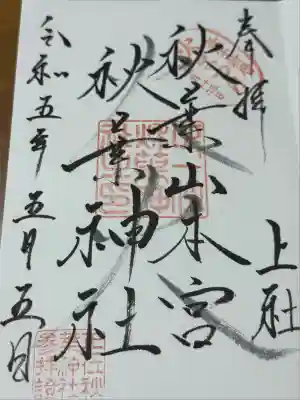 奉拝
上社
秋葉山本宮
秋葉神社
令和五年五月五日